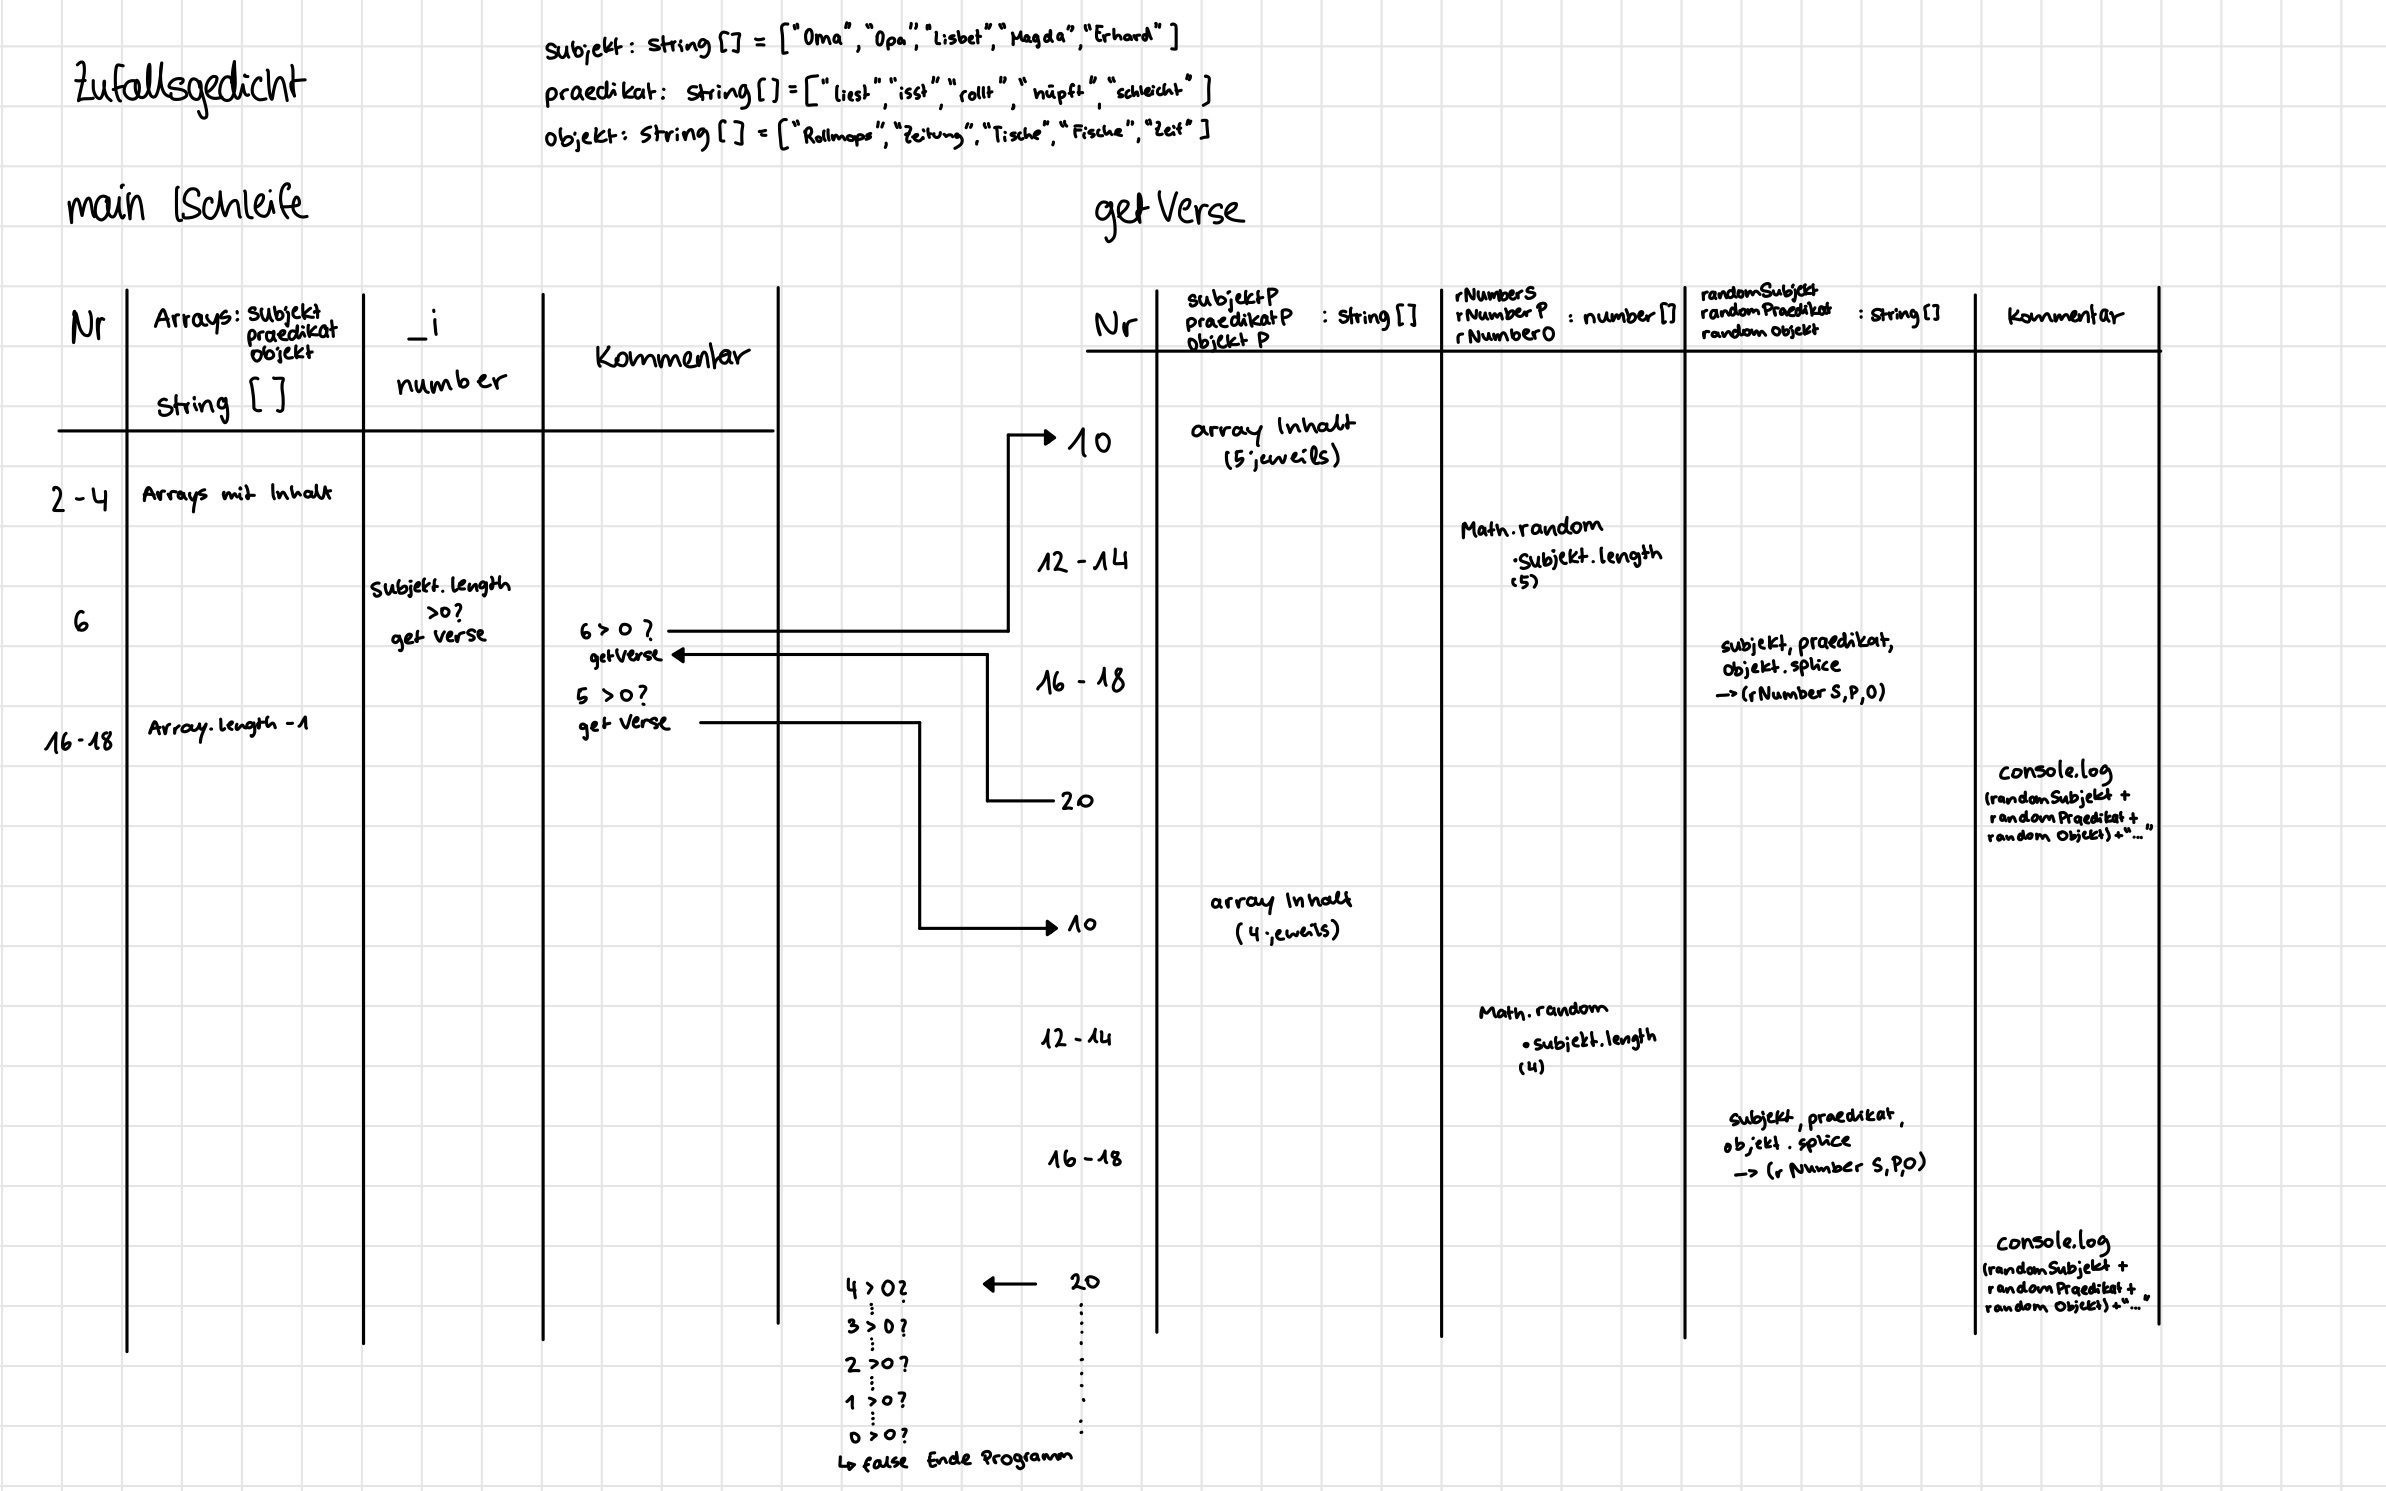 Zufallsgedicht
subjekt: string [] = ["Oma", "Opa", "Lisbet", "Magda", "Erhard"]
praedikat: string [] = ["liest", "isst", "rollt", "hüpft", "schleicht"]
objekt: string [] = ["Rollmops", "Zeitung", "Tische", "Fische", "Zeit"]
main (Schleife
Nr
Arrays: subjekt
praedikat
objekt
string []
_i
number
Kommentar
2-4
Arrays mit Inhalt
6
Subjekt.length
>0?
get Verse
6 > 0 ?
getVerse
5 > 0?
get Verse
16-18
Array.length -1
getVerse
Nr
subjektP
praedikatP : string []
objekt P
rNumberS
rNumber P : number []
rNumberO
randomSubjekt
random Praedikat : string []
random Objekt
Kommentar
10
array Inhalt
(5 jeweils)
12-14
Math.random
·Subjekt.length
(5)
16-18
subjekt, praedikat,
objekt.splice
-> (rNumber S,P,O)
20
console.log
(randomSubjekt +
random Praedikat +
random Objekt) + "..."
10
array Inhalt
(4 jeweils)
12-14
Math.random
• subjekt.length
(4)
16-18
subjekt, praedikat,
objekt. splice
-> (r Number S,P,O)
20
console.log
(randomSubjekt +
random Praedikat +
random Objekt) + "..."
4 > 0?
3 > 0?
2 > 0?
1 > 0?
0 > 0?
↳ false Ende Programm